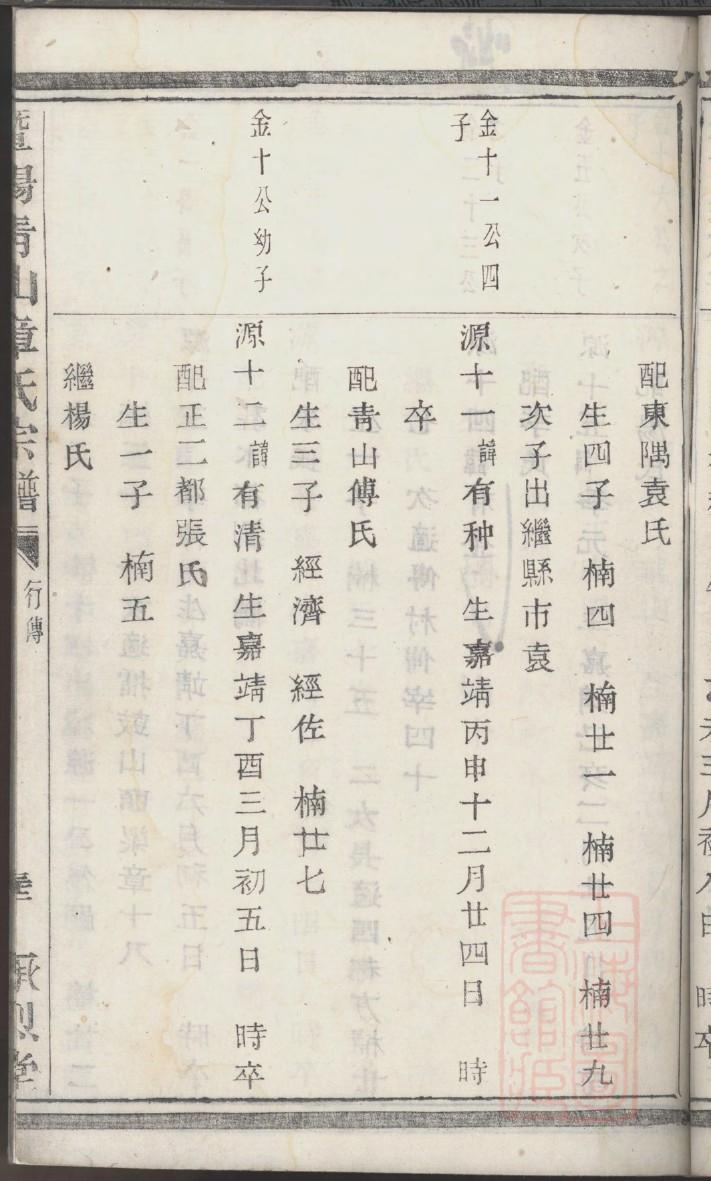 配東隅袁氏
生四子 楠四 楠廿一 楠廿四 楠廿九
次子出繼縣市袁
金十一公四
子
源十一諱有种 生嘉靖丙申十二月廿四日 時
卒
配青山傅氏
生三子 經濟 經佐 楠廿七
金十公幼子
源十二諱有清 生嘉靖丁酉三月初五日 時卒
配正二都張氏
生一子 楠五
繼楊氏
暨陽青山章氏宗譜 行傳
上海圖書館藏